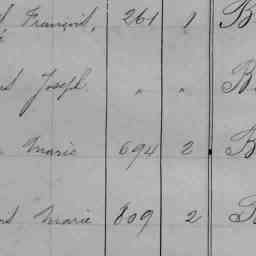 François, 261 1 B
Joseph " " B
Marie 694 2 B
Marie 809 2 B